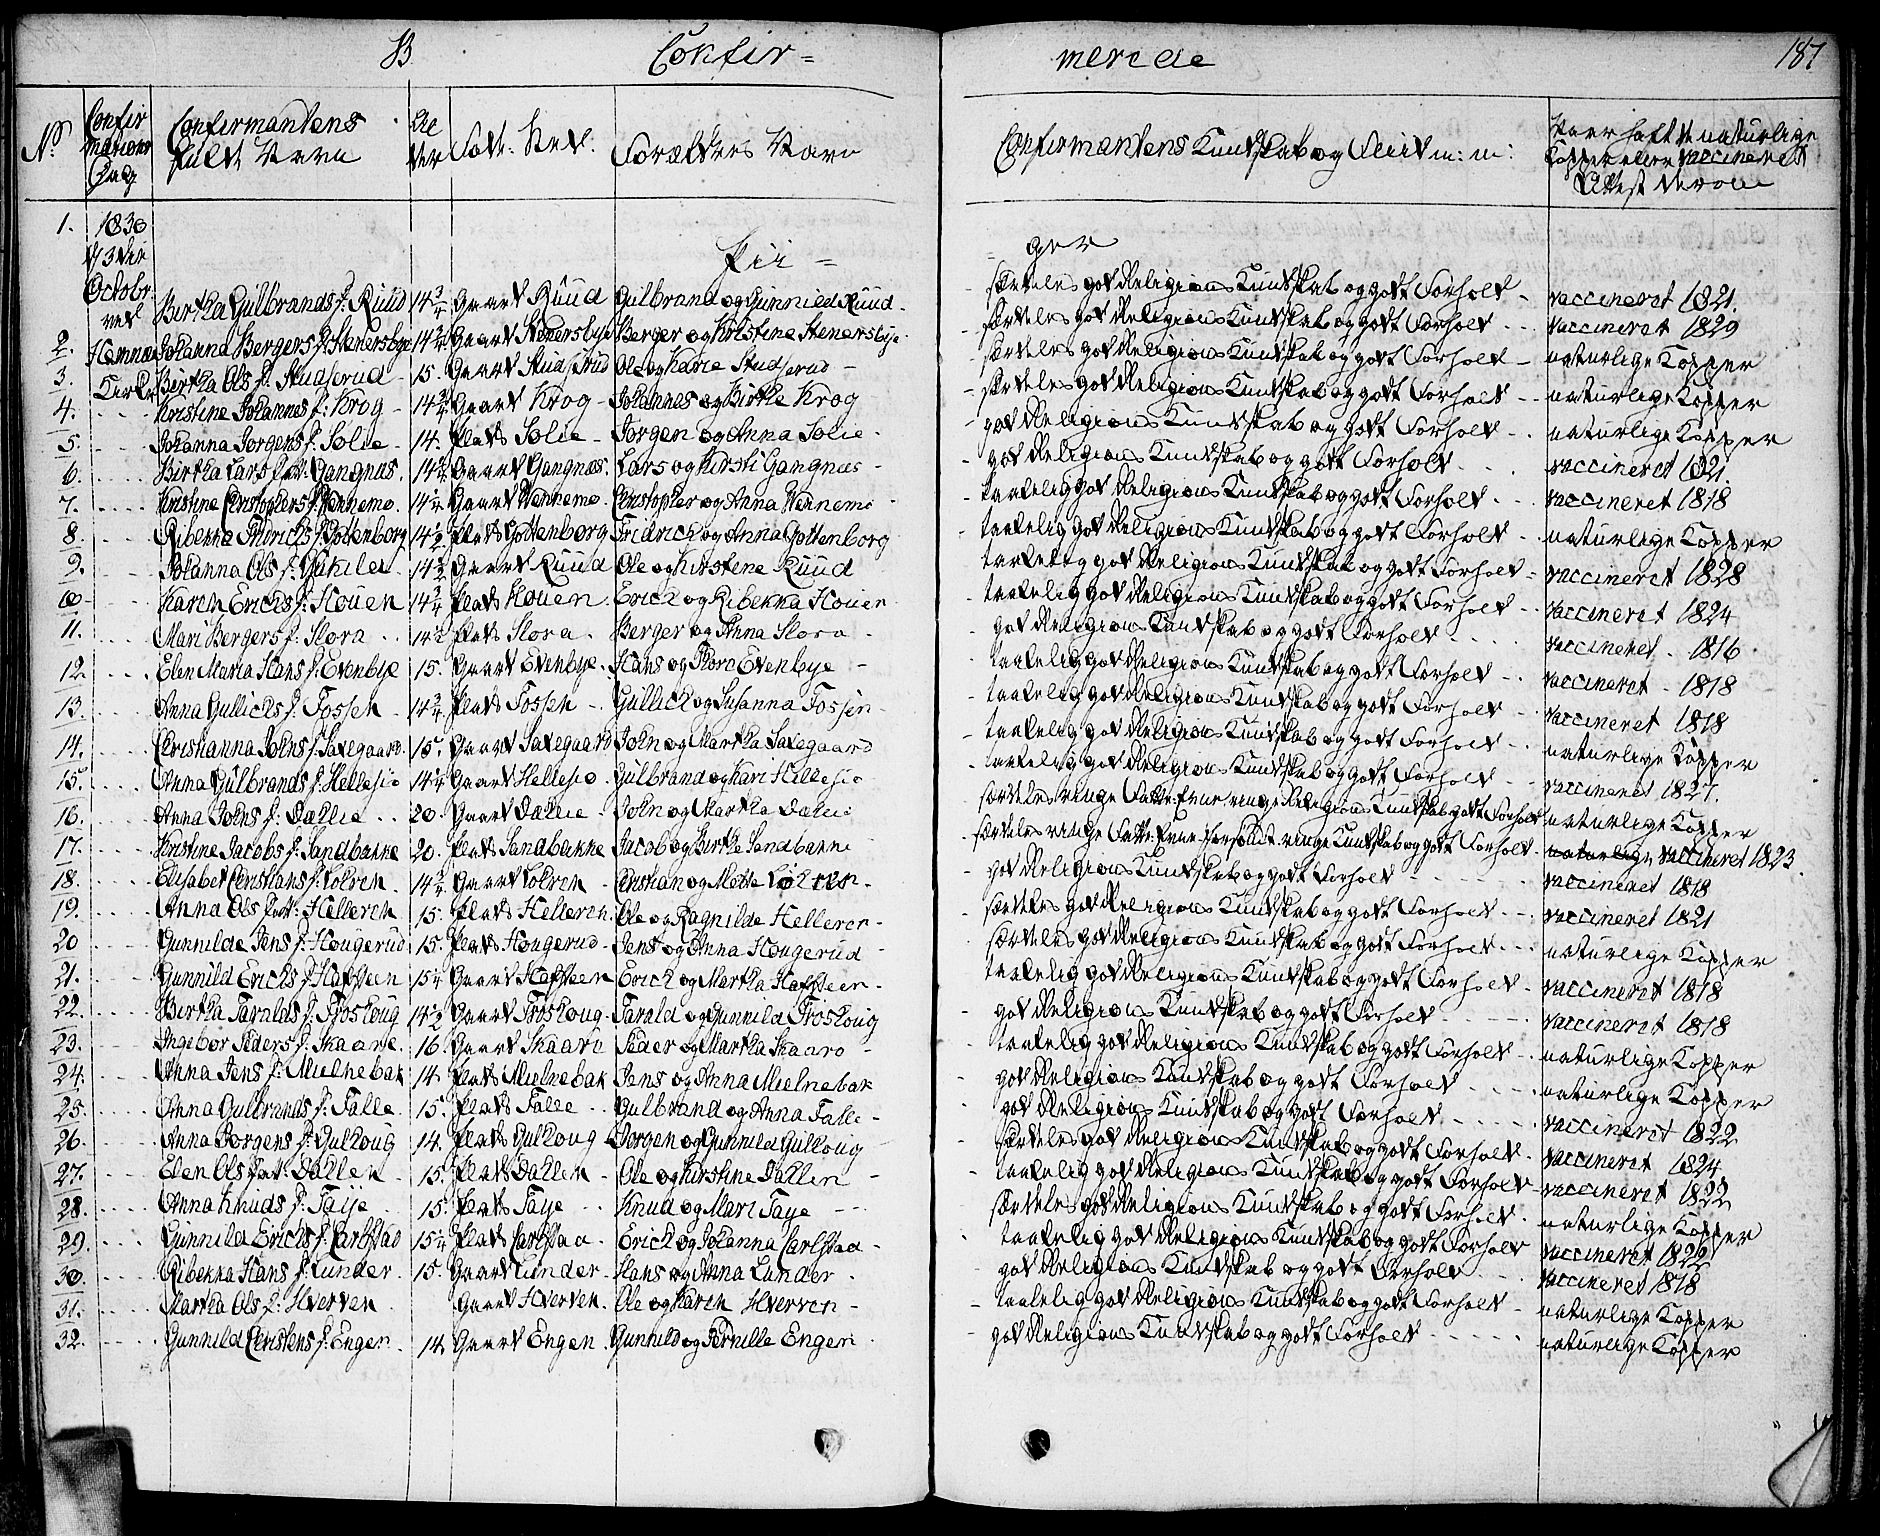 B Confir=
merede 187
No
Confir
mations
Dag
Confirmantens
fulde Navn
Al
der
Føde: Sted.
Forældres Navn
Confirmantens Kundskab og Fliid m: m:
Naar hafte naturlige
Kopper eller vaccineret
Attest derom
1830
d/3die
Octobr.
ved
Hemnæs
Kirke
Pii =
= ger
1. Birtha Gulbrands f: Ruud 14 3/4 Gaard Ruud Gulbrand og Gunnild Ruud. særdeles god Religions Kundskab og godt Forhold - vaccineret 1821.
2. Johanna Bergers f: Stenersbye 14 3/4 Gaard Stenersbye Berger og Kirstine Stenersbye. særdeles god Religions Kundskab og godt Forhold - vaccineret 1829
3. Birtha Ols f: Studserud 15. Gaard Studserud Ole og Karie Studserud - særdeles god Religions Kundskab og godt Forhold - naturlige Kopper
4. Kirstine Johannes f: Krog - 14 3/4 Gaard Krog - Johannes og Birthe Krog særdeles god Religions Kundskab og godt Forhold - naturlige Kopper
5. Johanna Jorgens f: Solie - 14. Plads Solie - Jorgen og Anna Solie - god Religions Kundskab og godt Forhold - naturlige Kopper
6. Birtha Lars Gangnus. Gaard Gangnæs. Lars og Kirsti Gangnæs - god Religions Kundskab og godt Forhold - vaccineret 1821.
7. Kirstine Christophers f: Hennemo. 14 Gaard Hennemo. Christopher og Anna Hennemo taalelig god Religions Kundskab og godt Forhold - vaccineret 1818
8. Ribekka Fridrichs f: Gottenborg 14 1/2 Plads Gottenborg Fridrich og Anna Gottenborg taalelig god Religions Kundskab og godt Forhold - naturlige Kopper
9. Johanna Ols f: 14 Gaard Ruud Ole og Kirstine Ruud taalelig god Religions Kundskab og godt Forhold - vaccineret 1828
10 Karen Erichs f: Houen 14 3/4 Plads Houen. Erich og Ribekka Houen - taalelig god Religions Kundskab og godt Forhold - vaccineret 1824
11. Mari Bergers f: Slora 14 Plads Slora. Berger og Anna Slora - god Religions Kundskab og godt Forhold - vaccineret - 1816.
12. Elen Maria Hans f: Evenbye 15. Gaard Evenbye. Hans og Evenbye - taalelig god Religions Kundskab og godt Forhold - vaccineret - 1818
13. Anna Gullichs f: Fossen - 14 3/4 Plads Fossen - Gullich og Susanna Fossen - taalelig god Religions Kundskab og godt Forhold - vaccineret 1818
14. Christianna Johns f: Saxegaard. 15. Gaard Saxegaard John og Martha Saxegaard taalelig god Religions Kundskab og godt Forhold - naturlige Kopper
15. Anna Gulbrands f: Hellesio 14 Gaard Hellesio - Gulbrand og Kari Hellesio taalelig god Religions Kundskab og godt Forhold - vaccineret 1827.
16. Anna Johns f: Dahlie 20. Gaard Dahlie. John og Martha Dahlie særdeles ringe Fatte Evne ringe Religions Kundskab godt Forhold naturlige Kopper
17. Kirstine Jacobs f: Sandbakke 20. Plads Sandbakke Jacob og Birthe Sandbakke særdeles ringe Fatte Evne ringe Kundskab og godt Forhold - naturlige vaccineret 1823.
18. Elisabet Christians f: Holten. 14 Gaard Holten - Christian og Mette Holten - god Religions Kundskab og godt Forhold - vaccineret 1818
19. Anna Ols Helleren 15. Plads Helleren. Ole og Ragnilde Helleren - særdeles god Religions Kundskab og godt Forhold - vaccineret 1821
20 Gunnilde Jens f: Hougerud 15. Plads Hougerud - Jens og Anna Hougerud - særdeles god Religions Kundskab og godt Forhold - naturlige Kopper
21. Gunnild Erichs f: Hafsteen 15 Gaard Hafsteen Erich og Martha Hafsteen - taalelig god Religions Kundskab og godt Forhold - vaccineret 1818
22. Birtha Taralds f: Froshoug 14 1/2 Gaard Froshoug - Tarald og Gunnild Froshoug god Religions Kundskab og godt Forhold - vaccineret 1818
23. Ingebor Peders f: Skaare. 16. Gaard Skaare Peder og Martha Skaare - taalelig god Religions Kundskab og godt Forhold - naturlige Kopper
24. Anna Jens f: Mielnebak 14. Plads Mielnebak Jens og Anna Mielnebak god Religions Kundskab og godt Forhold - naturlige Kopper
25. Anna Gulbrands f: Falle. 15. Plads Falle Gulbrand og Anna Falle - god Religions Kundskab og godt Forhold - vaccineret 1822
26. Anna Jorgens f: Gulhoug 14. Plads Gulhoug - Jorgen og Gunnild Gulhoug særdeles god Religions Kundskab og godt Forhold - vaccineret 1824
27. Elen Ols Dahlen - 15. Plads Dahlen - Ole og Kirstine Dahlen - taalelig god Religions Kundskab og godt Forhold - vaccineret 1822
28. Anna Knuds f: Faye 15. Plads Faye Knud og Mari Faye - særdeles god Religions Kundskab og godt Forhold - naturlige Kopper
29. Gunnild Erichs f: Carlstad 15 Plads Carlstad - Erich og Johanna Carlstad - taalelig god Religions Kundskab og godt Forhold vaccineret 1822
30. Ribekka Hans f: Lunder. 15. Gaard Lunder - Hans og Anna Lunder. god Religions Kundskab og godt Forhold - vaccineret 1818
31. Martha Ols f: Hverven Gaard Hverven. Ole og Karen Hverven - taalelig god Religions Kundskab og godt Forhold - naturlige Kopper
32. Gunnild Christens f: Engen. 14. Gaard Engen. Gunnild og Pernille Engen. god Religions Kundskab og godt Forhold - naturlige Kopper